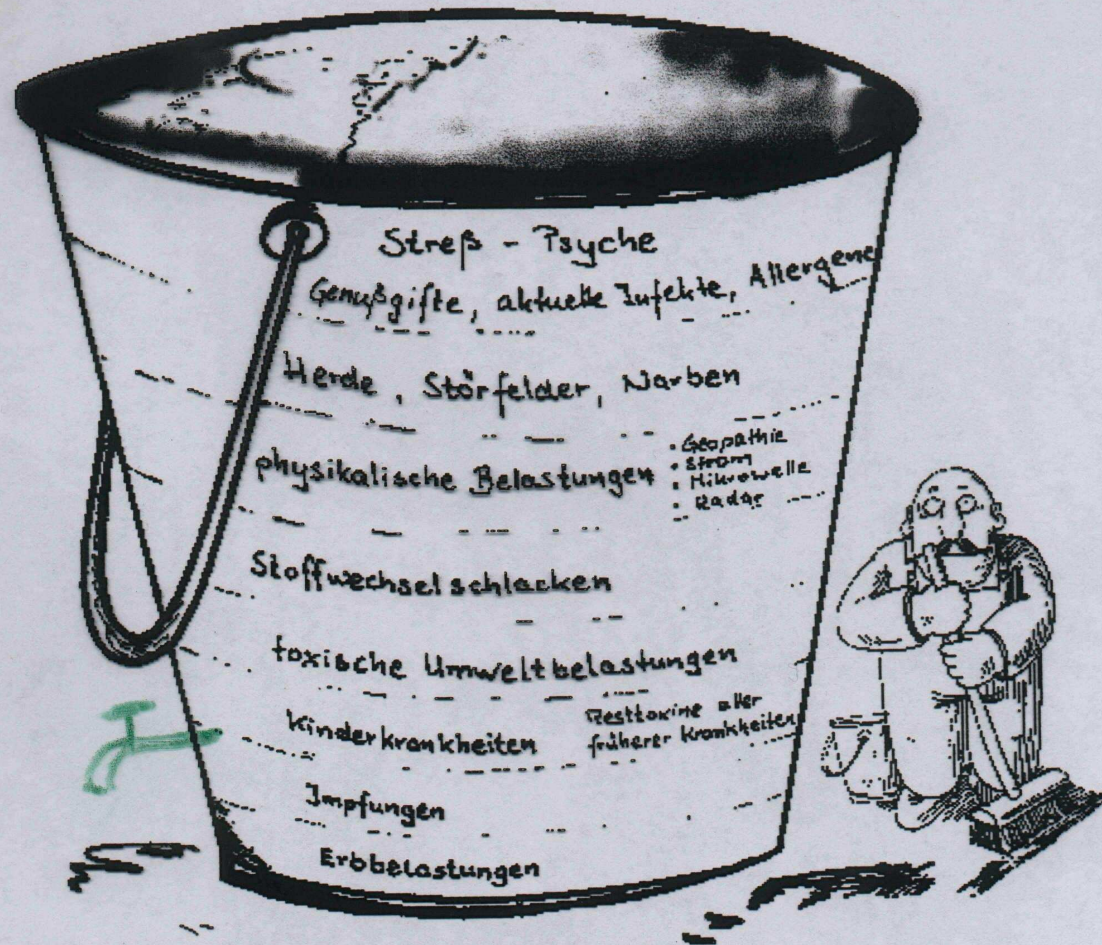 Streß - Psyche
Genußgifte, aktuelle Infekte, Allergene
Herde, Störfelder, Narben
physikalische Belastungen
• Geopathie
• Strom
• Mikrowelle
• Radar
Stoffwechselschlacken
toxische Umweltbelastungen
Kinderkrankheiten
Resttoxine aller
früherer Krankheiten
Impfungen
Erbbelastungen